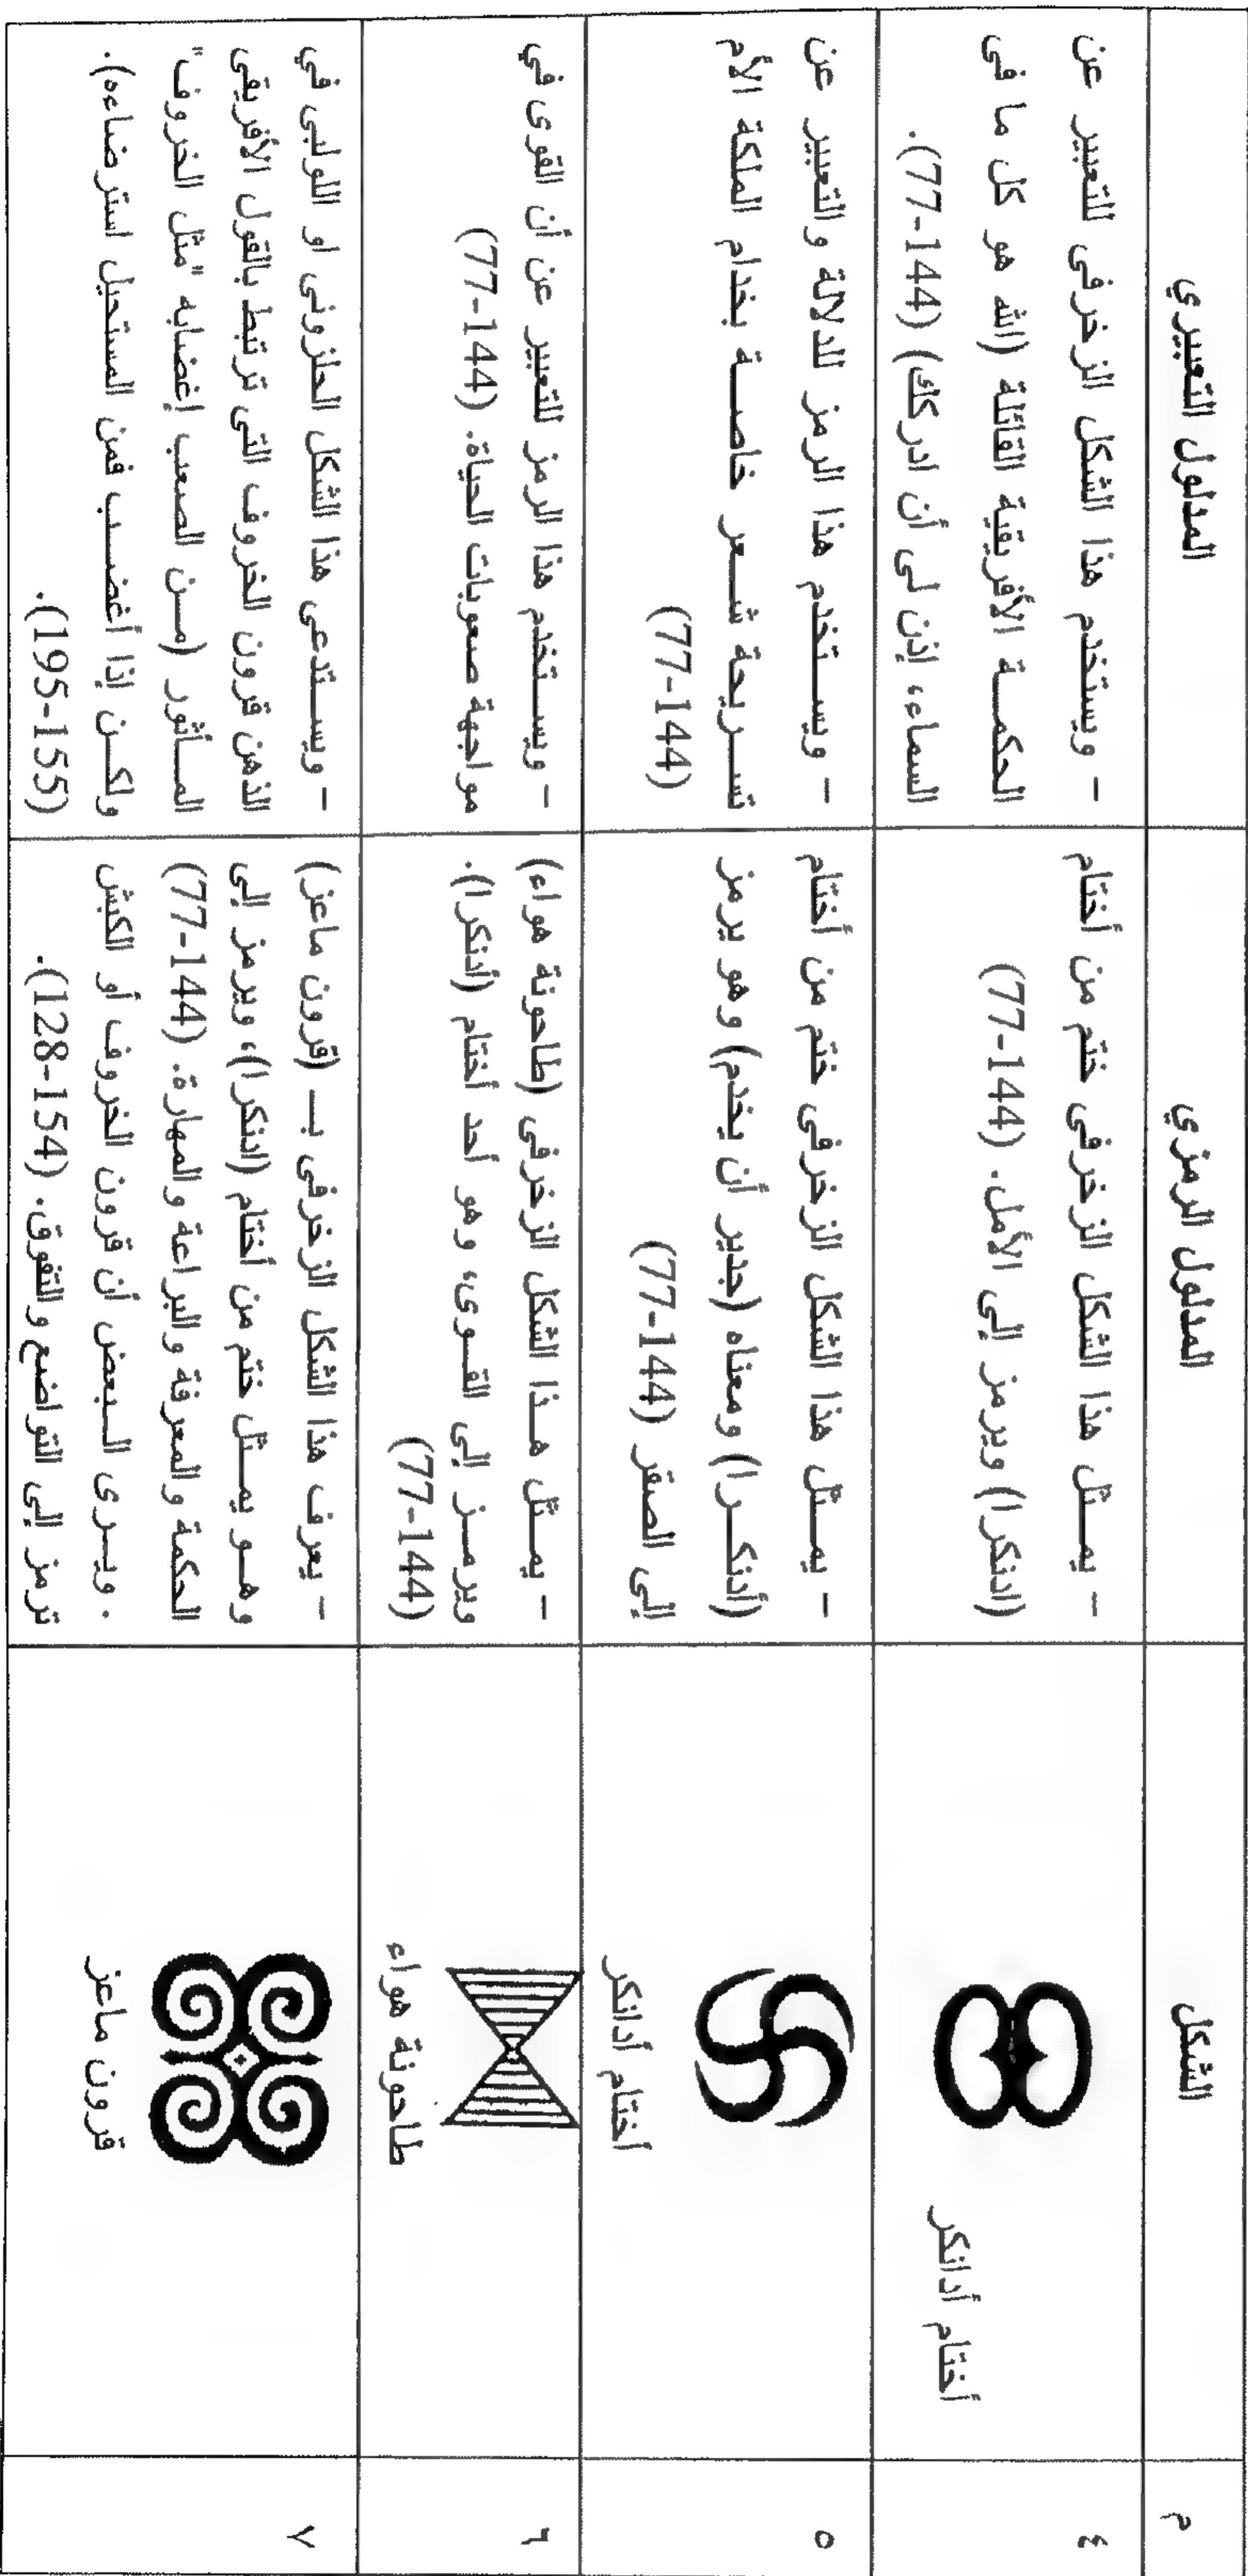 م
الشكل
المدلول الرمزي
المدلول التعبيري
٤
أختام أدانكر
- يمثل هذا الشكل الزخرفى ختم من أختام
(ادنكرا) ويرمز إلى الأمل. (144-77)
- ويستخدم هذا الشكل الزخرفى للتعبير عن
الحكمة الأفريقية القائلة (الله هو كل ما فى
السماء، إذن لى أن ادركك) (144-77).
٥
اختام أدانكر
- يمثل هذا الشكل الزخرفى ختم من أختام
(أدنكرا) ومعناه (جدير أن يخدم) وهو يرمز
إلى الصقر (144-77)
- ويستخدم هذا الرمز للدلالة والتعبير عن
تسريحة شعر خاصة بخدام الملكة الأم
(144-77)
٦
طاحونة هواء
- يمثل هذا الشكل الزخرفى (طاحونة هواء)
ويرمز إلى القوى، وهو أحد أختام (أدنكرا).
(144-77)
- ويستخدم هذا الرمز للتعبير عن أن القوى في
مواجهة صعوبات الحياة. (144-77)
٧
قرون ماعز
- يعرف هذا الشكل الزخرفى بـ (قرون ماعز)
وهو يمثل ختم من أختام (ادنكرا)، ويرمز إلى
الحكمة والمعرفة والبراعة والمهارة. (144-77)
. ويرى البعض أن قرون الخروف أو الكبش
ترمز إلى التواضع والتفوق. (154-128).
- ويستدعى هذا الشكل الحلزونى او اللولبى في
الذهن قرون الخروف التى ترتبط بالقول الأفريقى
المأثور (من الصعب إغضابه "مثل الخروف"
ولكن إذا أغضب فمن المستحيل استرضاءه).
(155-195).